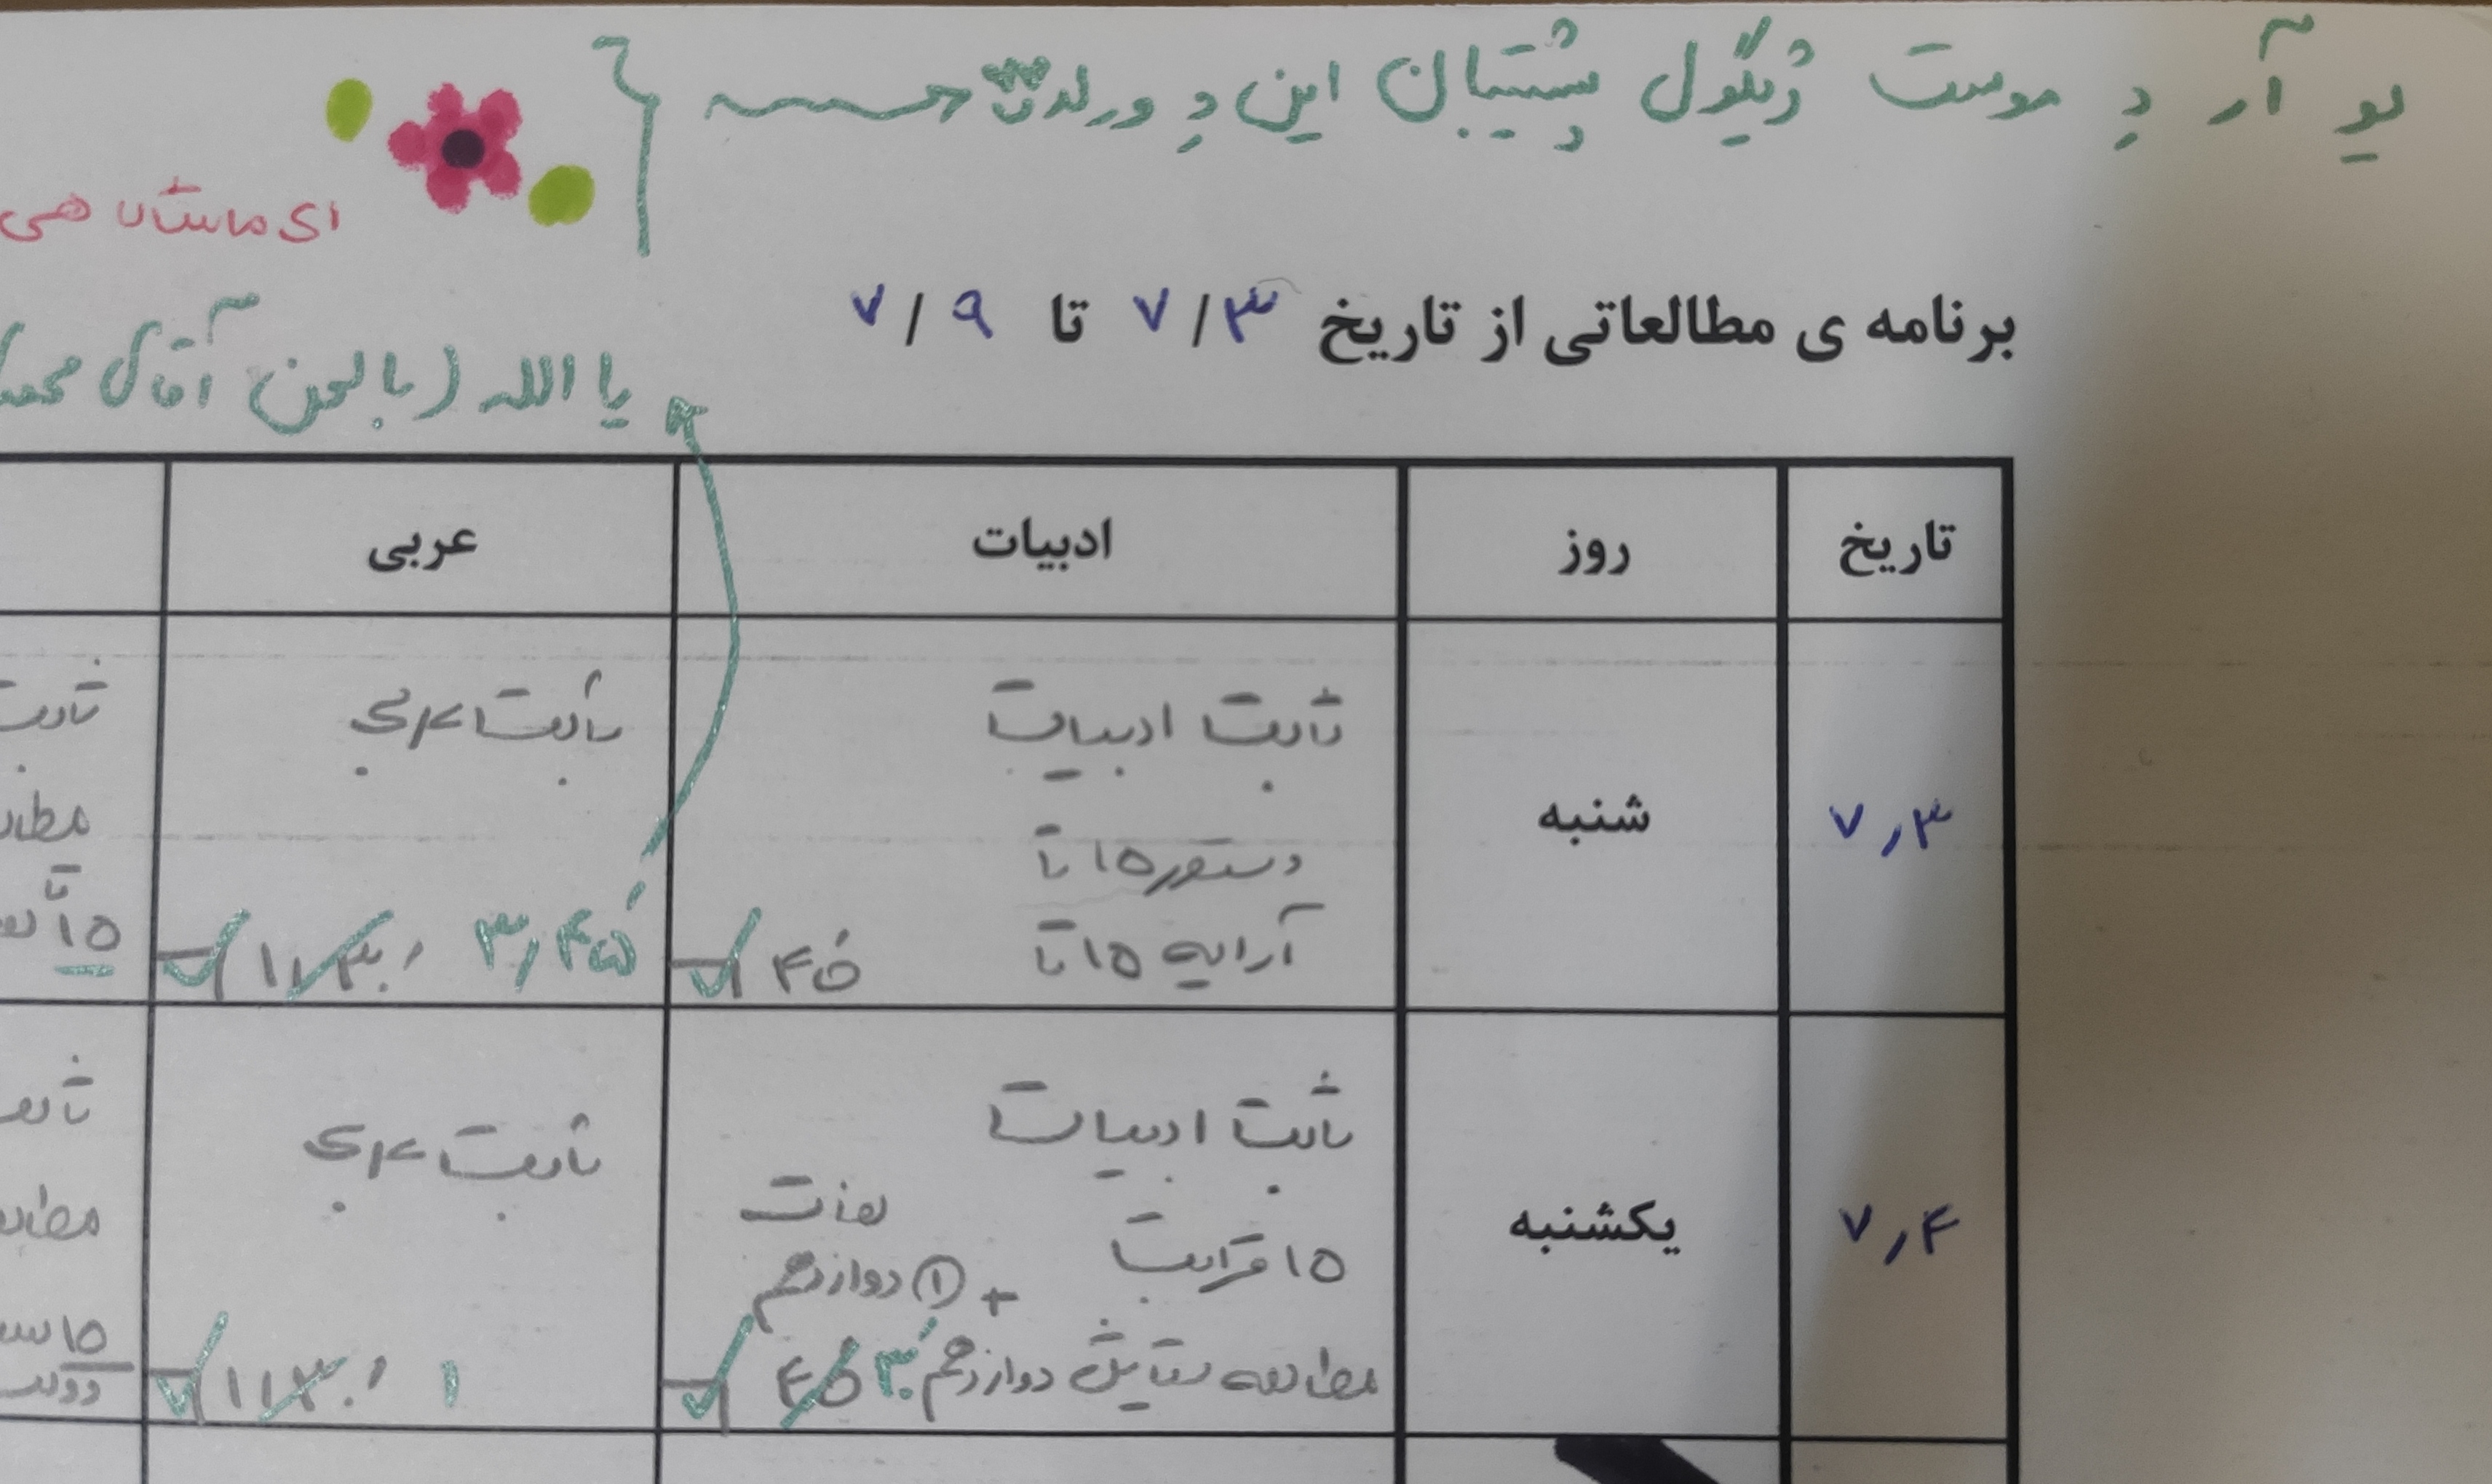 یو آر دِ موست ژیگول پشتیبان این دِ ورلد
ای ماشالا هی
برنامه ی مطالعاتی از تاریخ ۷/۳ تا ۷/۹
یا الله (با لحن آقای محمد
تاریخ روز ادبیات عربی
۷٫۳ شنبه ثابت ادبیات ثابت عربی ثابت
دستور ۱۵ تا مطالعه
آرایه ۱۵ تا ۴۵' ۳٫۴۵' ۱٫۳۰' ۱۵ تا
۷٫۴ یکشنبه ثابت ادبیات ثابت عربی
لغات
۱۵ قرابت + ① دوازدهم
مطالعه ستایش دوازدهم ۳۰' ۴۵' ۱ ۱٫۳۰' ۱۵